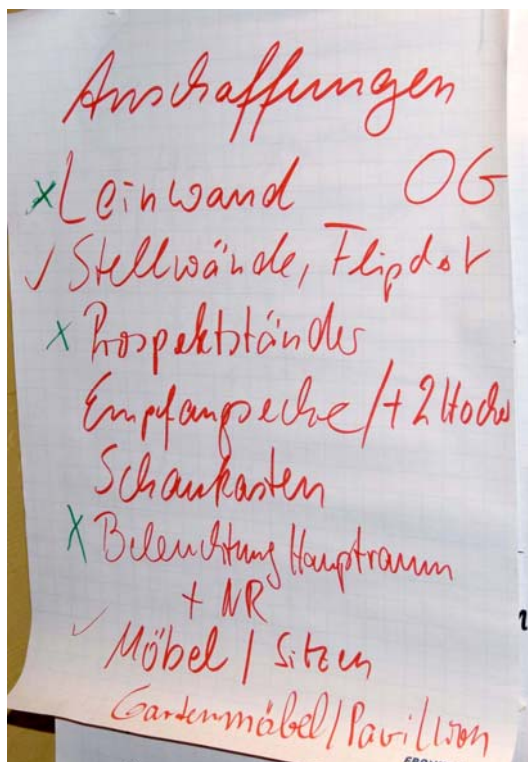 Anschaffungen
x Leinwand OG
✓ Stellwände, Flip
x Prospektständer
Empfangsecke / + 2 Hocker
Schaukasten
x Beleuchtung Hauptraum
+ NR
✓ Möbel / Sitzen
Gartenmöbel / Pavillion